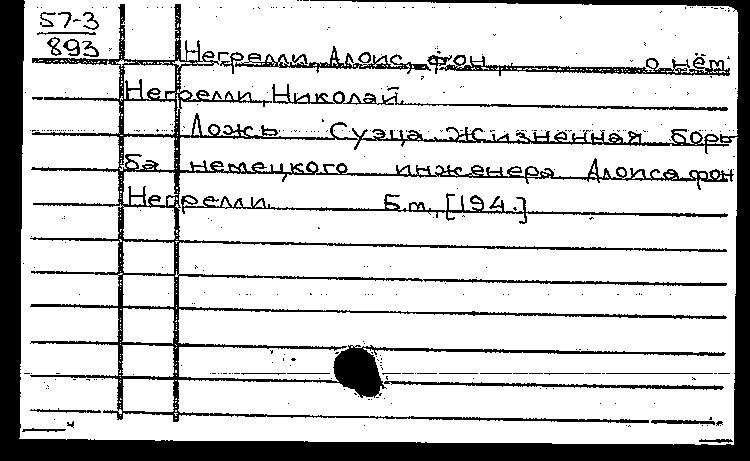 57-3
893
Негрелли, Алоис, фон, о нём
Негрелли, Николай.
Ложь Суэца. Жизненная борь-
ба немецкого инженера Алоиса фон
Негрелли. Б.м., [194.]